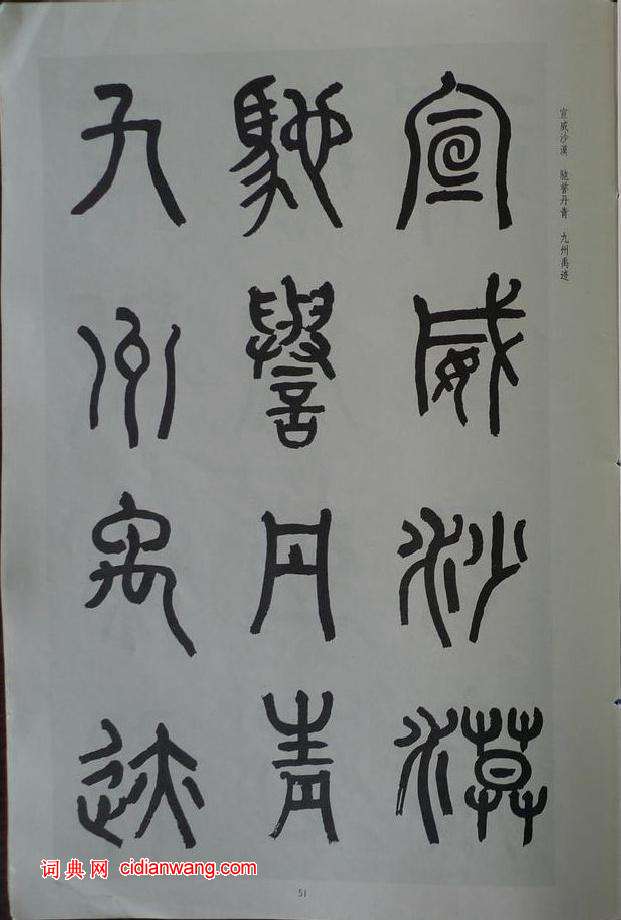 宣威沙漠 馳誉丹青 九州禹迹
宣威沙漠
馳譽丹青
九州禹迹
51
词典网 cidianwang.com